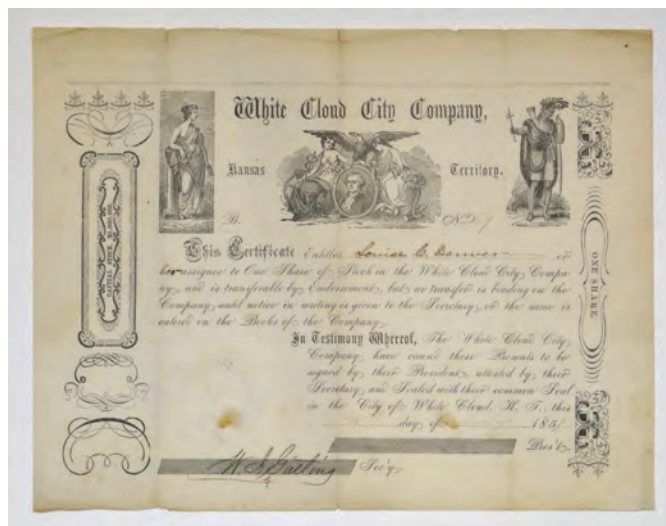 White Cloud City Company,
Kansas Territory.
D. No.
This Certificate Entitles Louise C. Denver or
her assigns to One Share of Stock in the White Cloud City Compa-
ny, and is transferable by Endorsement, but no transfer is binding on the
Company until notice in writing is given to the Secretary, or the same is
entered on the Books of the Company.
In Testimony Whereof, The White Cloud City
Company, have caused these Presents to be
signed by their President, attested by their
Secretary, and Sealed with their common Seal
in the City of White Cloud, K. T., this
day of 185
Pres't.
Sec'y.
CAPITAL STOCK
ONE SHARE